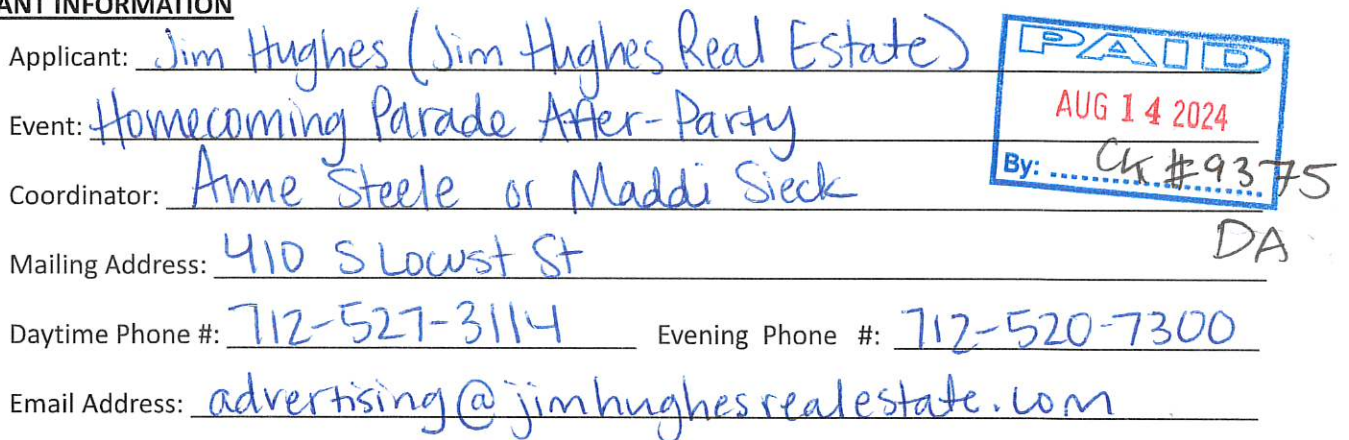 ANT INFORMATION
Applicant: Jim Hughes (Jim Hughes Real Estate)
PAID
AUG 14 2024
By: Ck #9375
DA
Event: Homecoming Parade After-Party
Coordinator: Anne Steele or Maddi Sieck
Mailing Address: 410 S Locust St
Daytime Phone #: 712-527-3114 Evening Phone #: 712-520-7300
Email Address: advertising@jimhughesrealestate.com